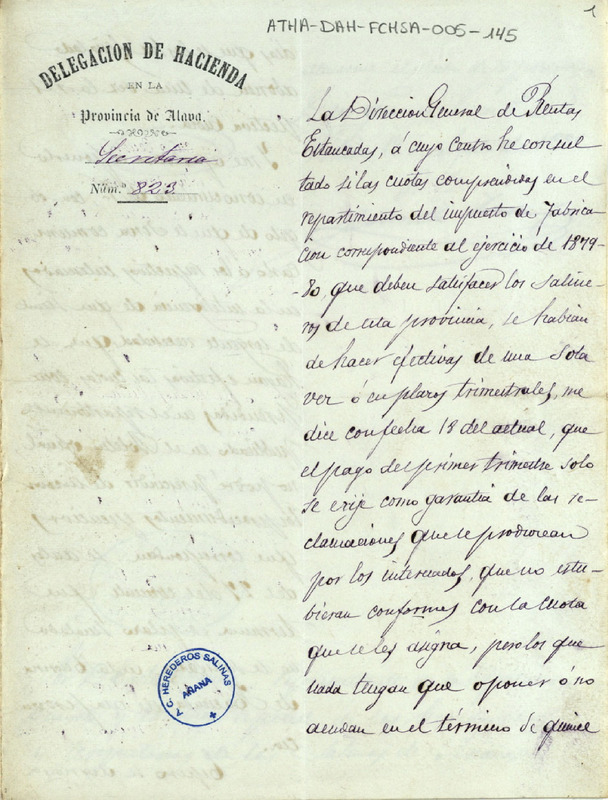 1
ATHA-DAH-FCHSA-005-145
DELEGACION DE HACIENDA
EN LA
Provincia de Alava.
Secretaria
Núm.º 823
La Direccion General de Rentas
Estancadas, á cuyo Centro he consul
tado si las cuotas comprendidas en el
repartimiento del impuesto de fabrica-
cion correspondiente al ejercicio de 1879-
-80 que deben satisfacer los saline-
ros de esta provincia, se habian
de hacer efectivas de una sola
vez ó en plazos trimestrales, me
dice con fecha 18 del actual, que
el pago del primer trimestre solo
se exije como garantia de las re-
clamaciones que se produzcan
por los interesados, que no estu-
bieran conformes con la cuota
que se les asigna, pero los que
nada tengan que oponer ó no
acudan en el término de quince
Y. C. HEREDEROS SALINAS
AÑANA